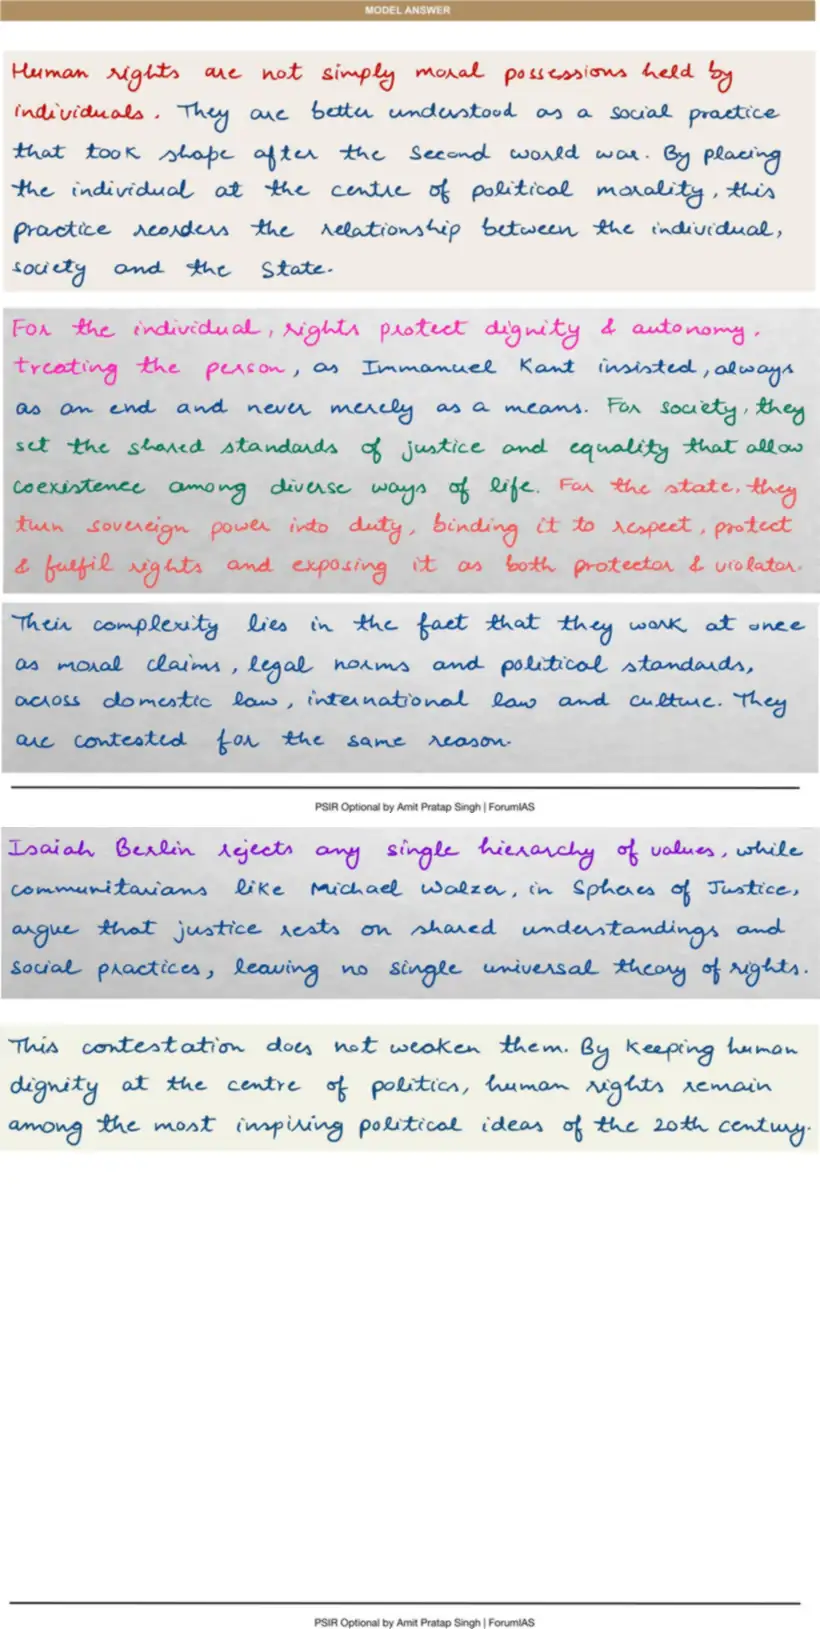 MODEL ANSWER
Human rights are not simply moral possessions held by
individuals. They are better understood as a social practice
that took shape after the Second world war. By placing
the individual at the centre of political morality, this
practice reorders the relationship between the individual,
society and the State.
For the individual, rights protect dignity & autonomy,
treating the person, as Immanuel Kant insisted, always
as an end and never merely as a means. For society, they
set the shared standards of justice and equality that allow
coexistence among diverse ways of life. For the state, they
turn sovereign power into duty, binding it to respect, protect
& fulfil rights and exposing it as both protector & violator.
Their complexity lies in the fact that they work at once
as moral claims, legal norms and political standards,
across domestic law, international law and culture. They
are contested for the same reason.
PSIR Optional by Amit Pratap Singh | ForumIAS
Isaiah Berlin rejects any single hierarchy of values, while
communitarians like Michael Walzer, in Spheres of Justice,
argue that justice rests on shared understandings and
social practices, leaving no single universal theory of rights.
This contestation does not weaken them. By keeping human
dignity at the centre of politics, human rights remain
among the most inspiring political ideas of the 20th century.
PSIR Optional by Amit Pratap Singh | ForumIAS